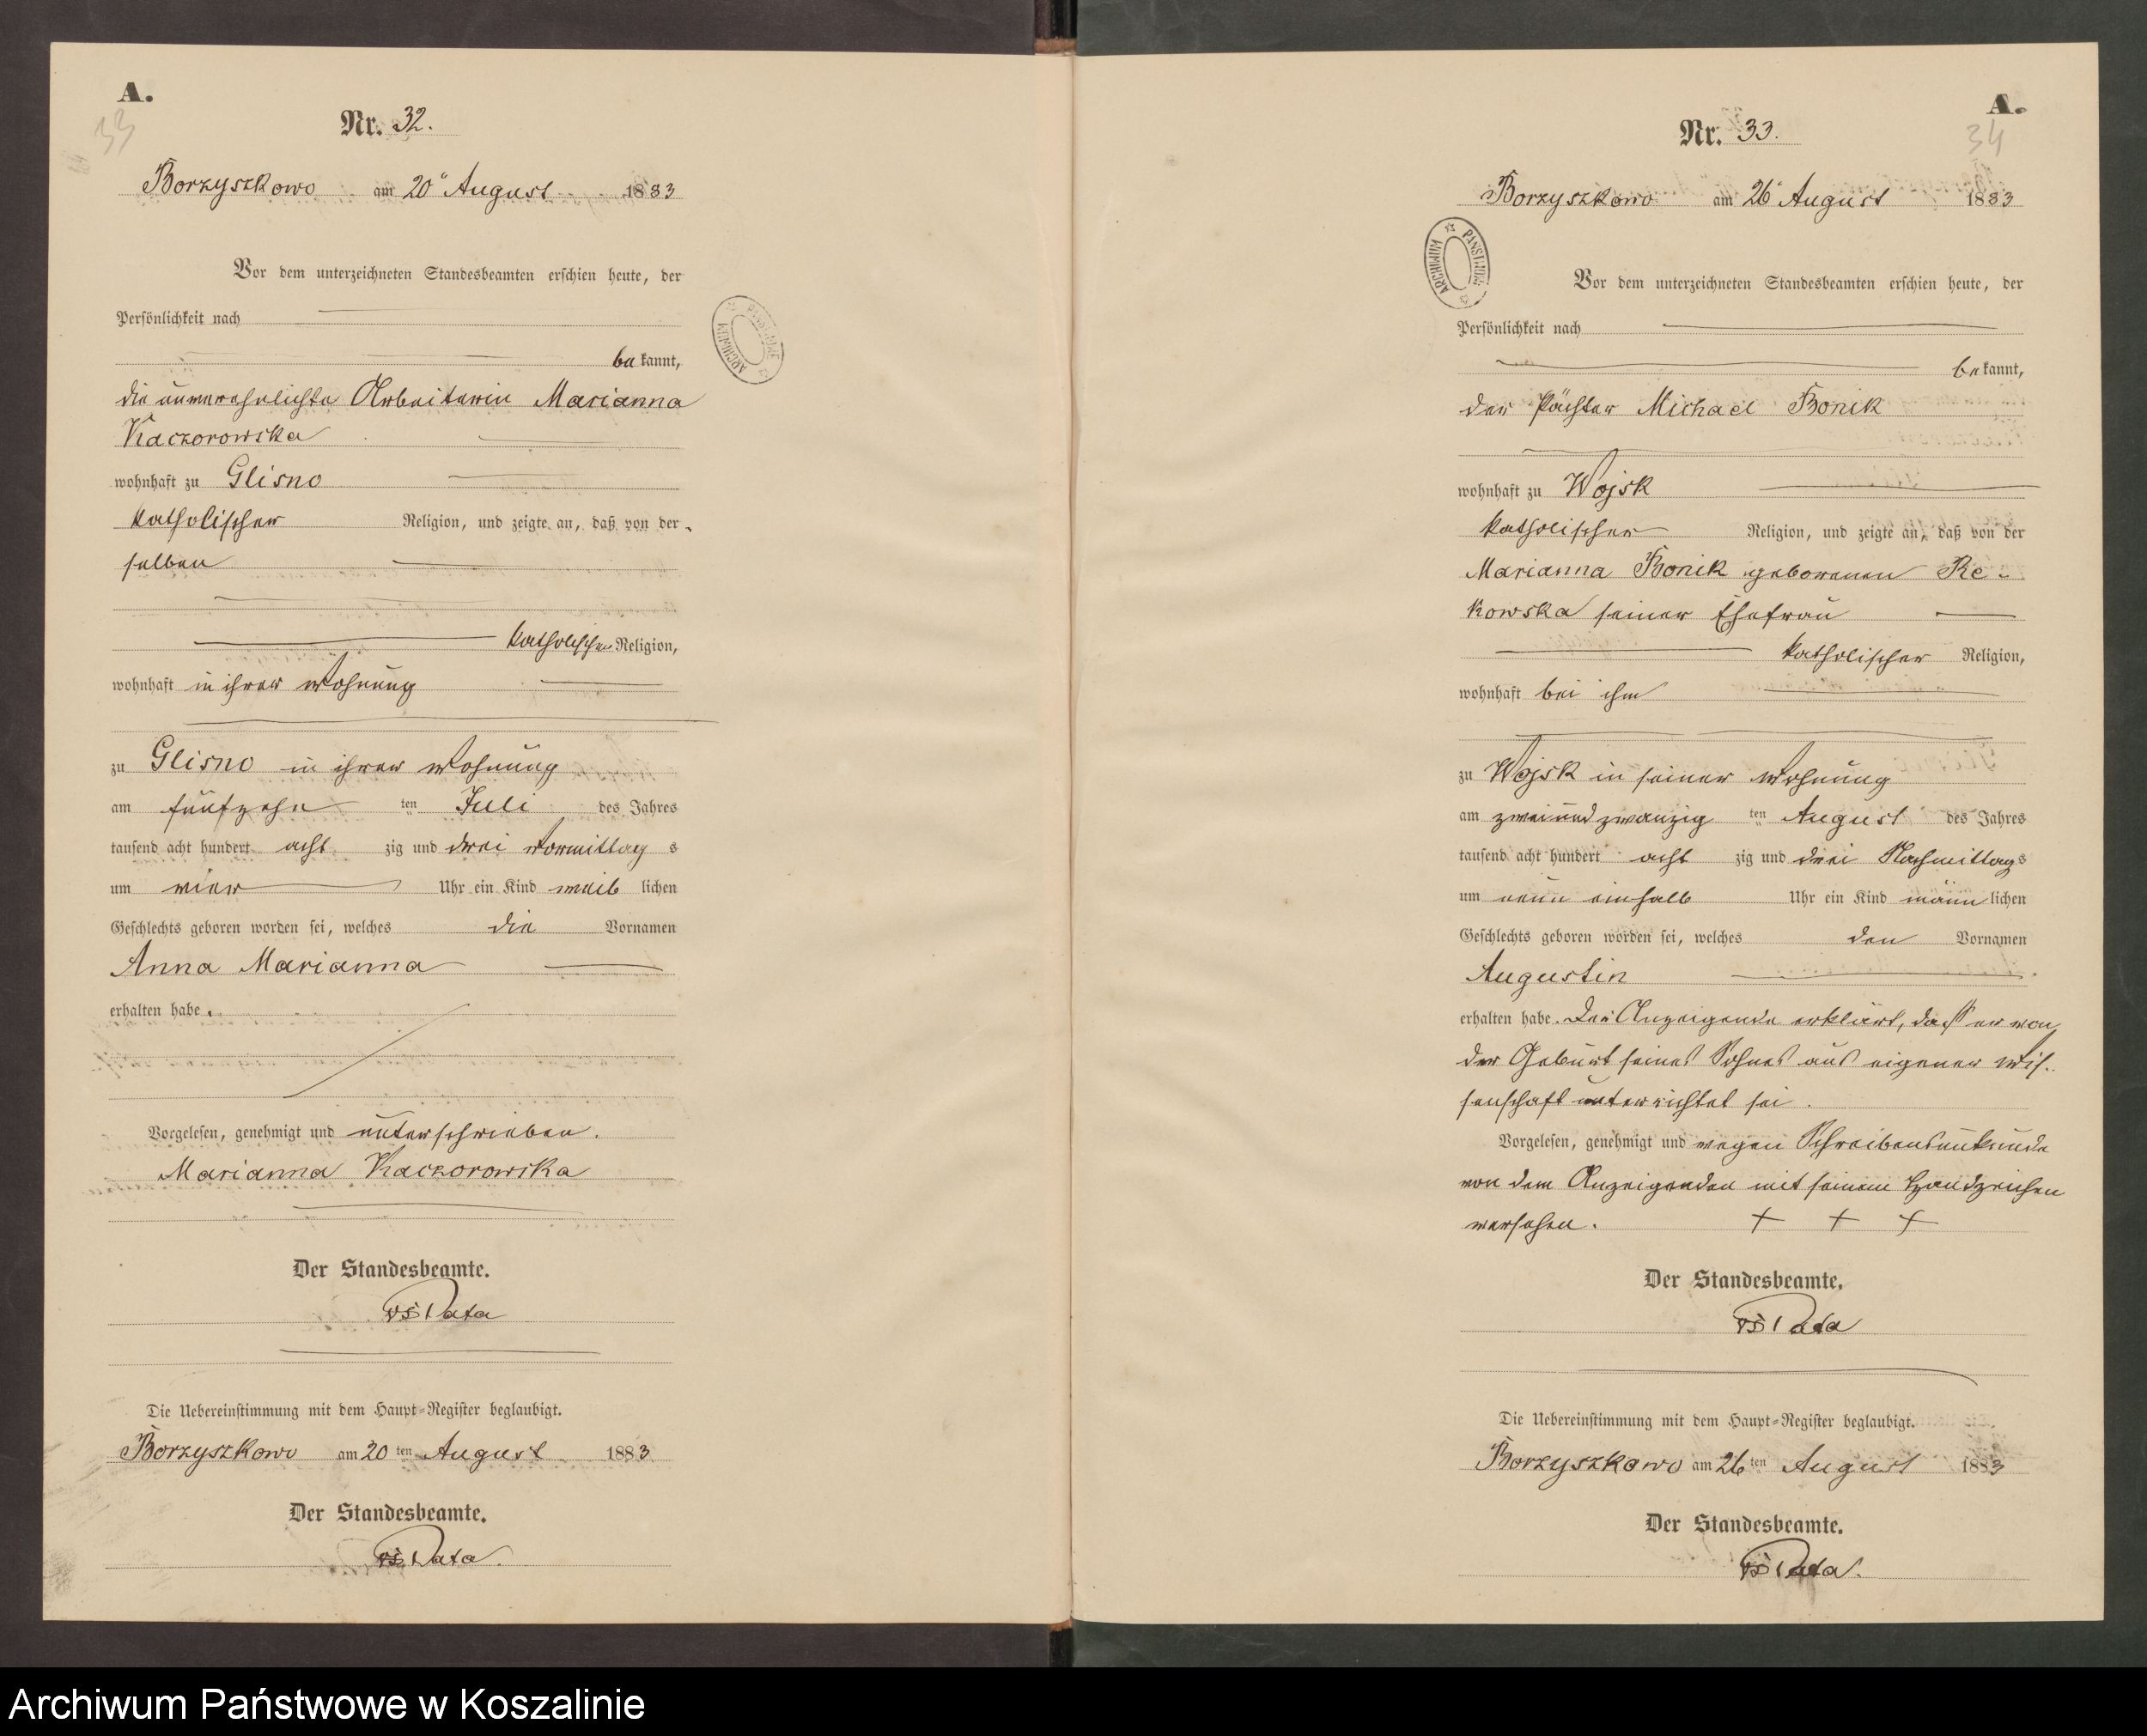 A.
33
Nr. 32.
Borzyszkowo am 20ᵗ August 1883
Vor dem unterzeichneten Standesbeamten erschien heute, der
Persönlichkeit nach
bekannt,
die unverehelichte Arbeiterin Marianna
Kaczorowska
wohnhaft zu Glisno
katholischer Religion, und zeigte an, daß von der-
selben
katholischer Religion,
wohnhaft in ihrer Wohnung
zu Glisno in ihrer Wohnung
am fünfzehn ten Juli des Jahres
tausend acht hundert acht zig und drei Vormittag s
um vier Uhr ein Kind weib lichen
Geschlechts geboren worden sei, welches die Vornamen
Anna Marianna
erhalten habe.
Vorgelesen, genehmigt und unterschrieben.
Marianna Kaczorowska
Der Standesbeamte.
Pata
Die Uebereinstimmung mit dem Haupt-Register beglaubigt.
Borzyszkowo am 20 ten August 1883
Der Standesbeamte.
Pata.
A.
34
Nr. 33.
Borzyszkowo am 26ᵗ August 1883
ARCHIWUM PAŃSTWOWE
Vor dem unterzeichneten Standesbeamten erschien heute, der
Persönlichkeit nach
bekannt,
der Pächter Michael Bonik
wohnhaft zu Wojsk
katholischer Religion, und zeigte an, daß von der
Marianna Bonik geborenen Re-
kowska seiner Ehefrau
katholischer Religion,
wohnhaft bei ihm
zu Wojsk in seiner Wohnung
am zweiundzwanzig ten August des Jahres
tausend acht hundert acht zig und drei Nachmittags
um neun einhalb Uhr ein Kind männ lichen
Geschlechts geboren worden sei, welches den Vornamen
Augustin
erhalten habe. Der Anzeigende erklärt, daß er von
der Geburt seines Sohnes aus eigener Wis-
senschaft unterrichtet sei.
Vorgelesen, genehmigt und wegen Schreibensunkunde
von dem Anzeigenden mit seinem Handzeichen
versehen. + + +
Der Standesbeamte.
Pata
Die Uebereinstimmung mit dem Haupt-Register beglaubigt.
Borzyszkowo am 26 ten August 1883
Der Standesbeamte.
Pata.
Archiwum Państwowe w Koszalinie